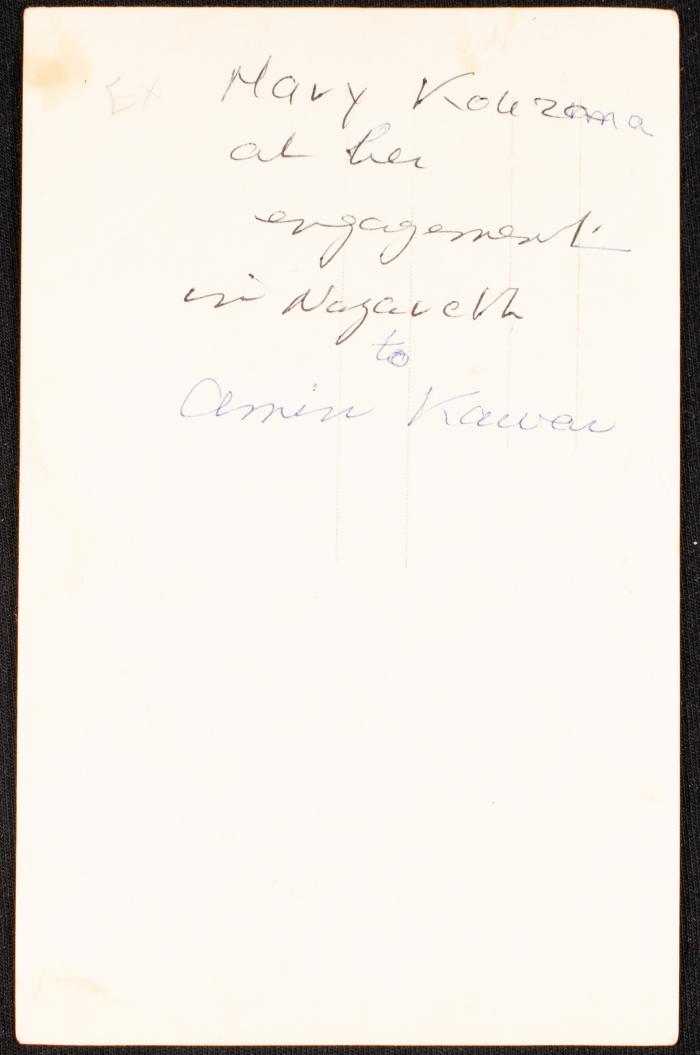 Ex Mary Kouzma
at her
engagement
in Nazareth
to
Amin Kawar